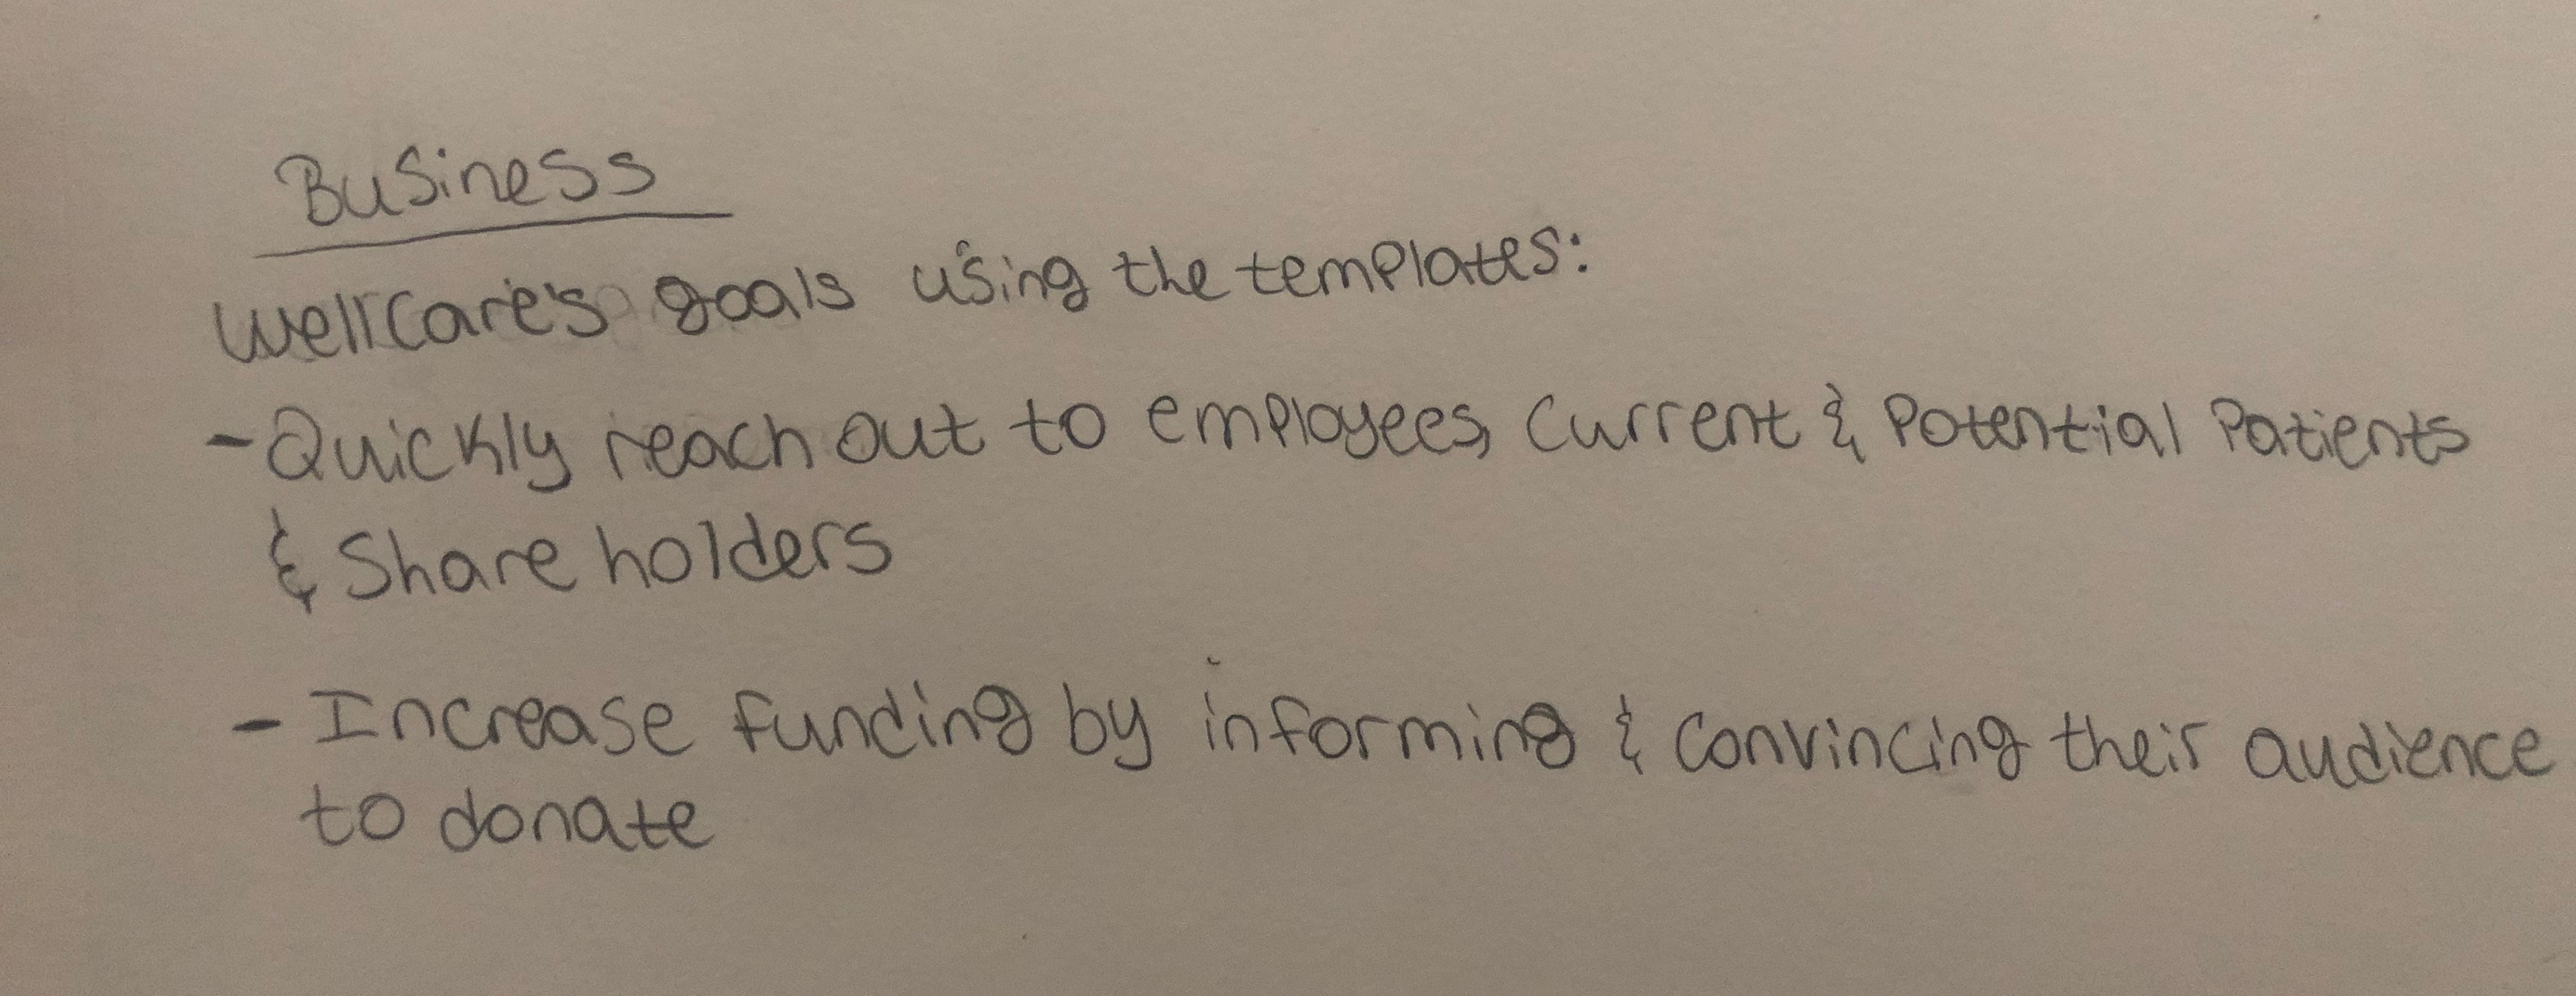 Business
Wellcare's goals using the templates:
- Quickly reach out to employees, current & Potential Patients
& Share holders
- Increase funding by informing & convincing their audience
to donate